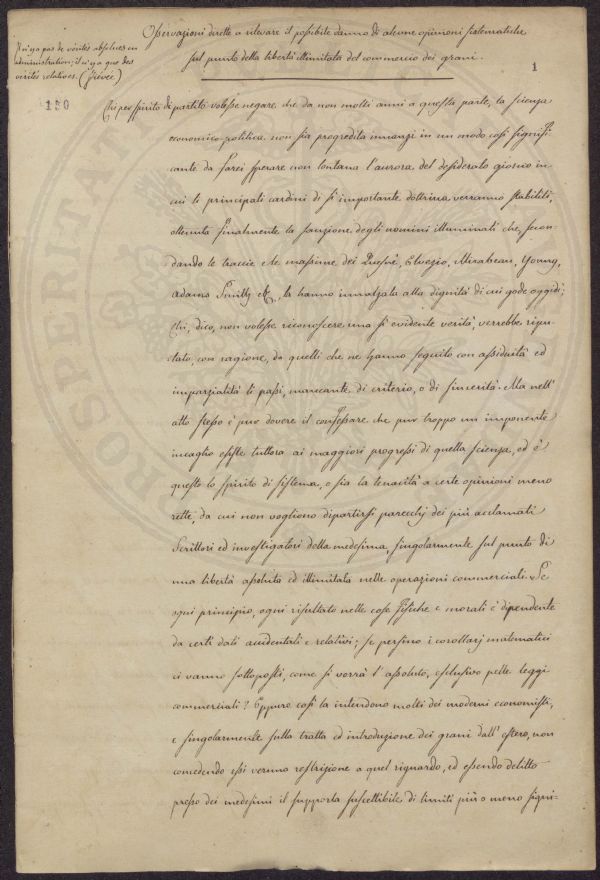 Osservazioni dirette a rilevare il possibile danno di alcune opinioni sistematiche
sul punto della libertà illimitata del commercio dei grani.
1
Il n'y a pas de vérités absolues en
administration; il n'y a que des
vérités relatives. (Fiévée)
130
Chi per spirito di partito volesse negare che da non molti anni a questa parte, la scienza
economico-politica non sia progredita innanzi in un modo così signifi-
cante da farci sperare non lontana l'aurora del desiderato giorno in
cui li principali cardini di sì importante dottrina verranno stabiliti,
ottenuta finalmente la sanzione degli uomini illuminati che secon-
dando le traccie e le massime dei Quesnè, Elvezio, Mirabeau, Young,
Adams Smitth &c., la hanno innalzata alla dignità di cui gode oggidì;
chi, dico, non volesse riconoscere una sì evidente verità, verrebbe ripu-
tato, con ragione, da quelli che ne hanno seguito con assiduità ed
imparzialità li passi, mancante di criterio, o di sincerità. Ma nell'
atto stesso è pur dovere il confessare che pur troppo un imponente
incaglio esiste tuttora ai maggiori progressi di quella scienza, ed è
questo lo spirito di sistema, o sia la tenacità a certe opinioni meno
rette, da cui non vogliono dipartirsi parecchj dei più acclamati
Scrittori ed investigatori della medesima, singolarmente sul punto di
una libertà assoluta ed illimitata nelle operazioni commerciali. Se
ogni principio, ogni risultato nelle cose fisiche e morali è dipendente
da certi dati accidentali e relativi; se persino i corollarj matematici
ci vanno sottoposti, come si vorrà l'assoluto, esclusivo pelle leggi
commerciali? Eppure così la intendono molti dei moderni economisti,
e singolarmente sulla tratta ed introduzione dei grani dall'estero, non
concedendo essi veruna restrizione a quel riguardo, ed essendo delitto
presso dei medesimi il supporla suscettibile di limiti più o meno signi-